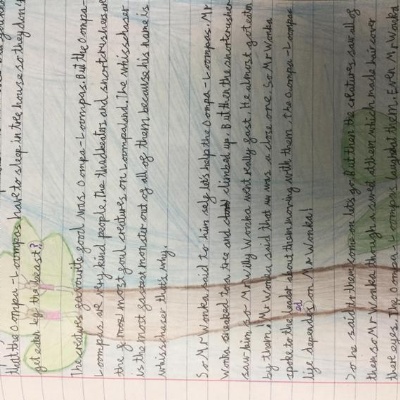 that the Oompa-Loompas have to sleep in tree house so they don't
get eaten by the beast?
The creatures favourite food was Oompa-Loompas. But the Oompa-
Loompas are very kind people. The thudbeatos and shortcrushes are
the most goul creatures on Loompaland. The whisschaser
is the most gavest monster out of all of them because his name is
whisschaser that's why.
So Mr Wonka said to him self let's help the Oompa-Loompas. Mr
Wonka sneaked to a tree and climbed up. But then the shortcrusher
saw him so Mr Willy Wonka went really fast. He almost got eaten
by them! Mr Wonka said that was a close one. So Mr Wonka
spoke to the leader about them moving with them. the Oompa-Loompas
life depends on Mr Wonka!
So he said to them come on lets go. But then the creatures saw all of
them so Mr Wonka though a sweet at them which made hair cover
there eyes. The Oompa-Loompas laughed at them. Even Mr Wonka